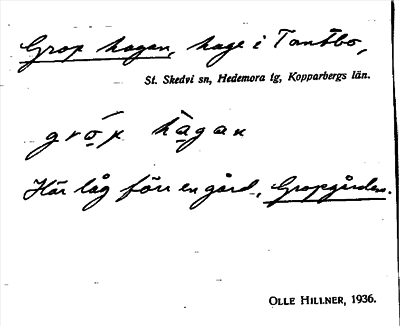 Grop hagan, hage i Tomtbo,
St. Skedvi sn, Hedemora tg, Kopparbergs län.
gróp hàgan
Här låg förr en gård, Gropgården.
OLLE HILLNER, 1936.